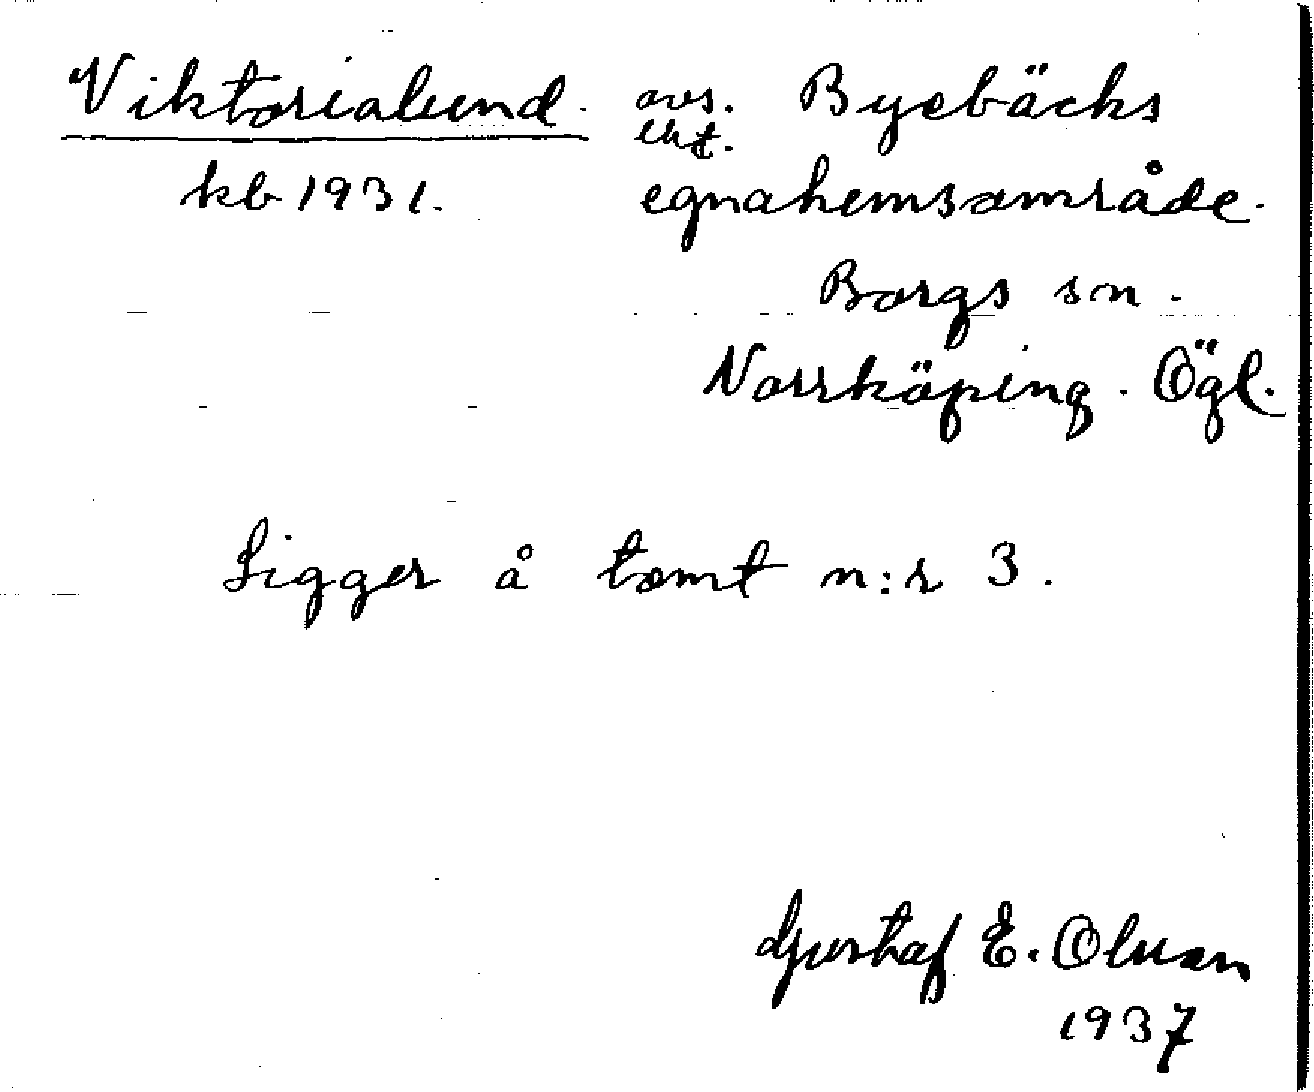 Viktorialund. avs. Byebäcks
lht.
kb 1931. egnahemsområde.
Borgs sn.
Norrköping. Ögl.
Ligger å tomt n:r 3.
Gustaf E. Olsson
1937